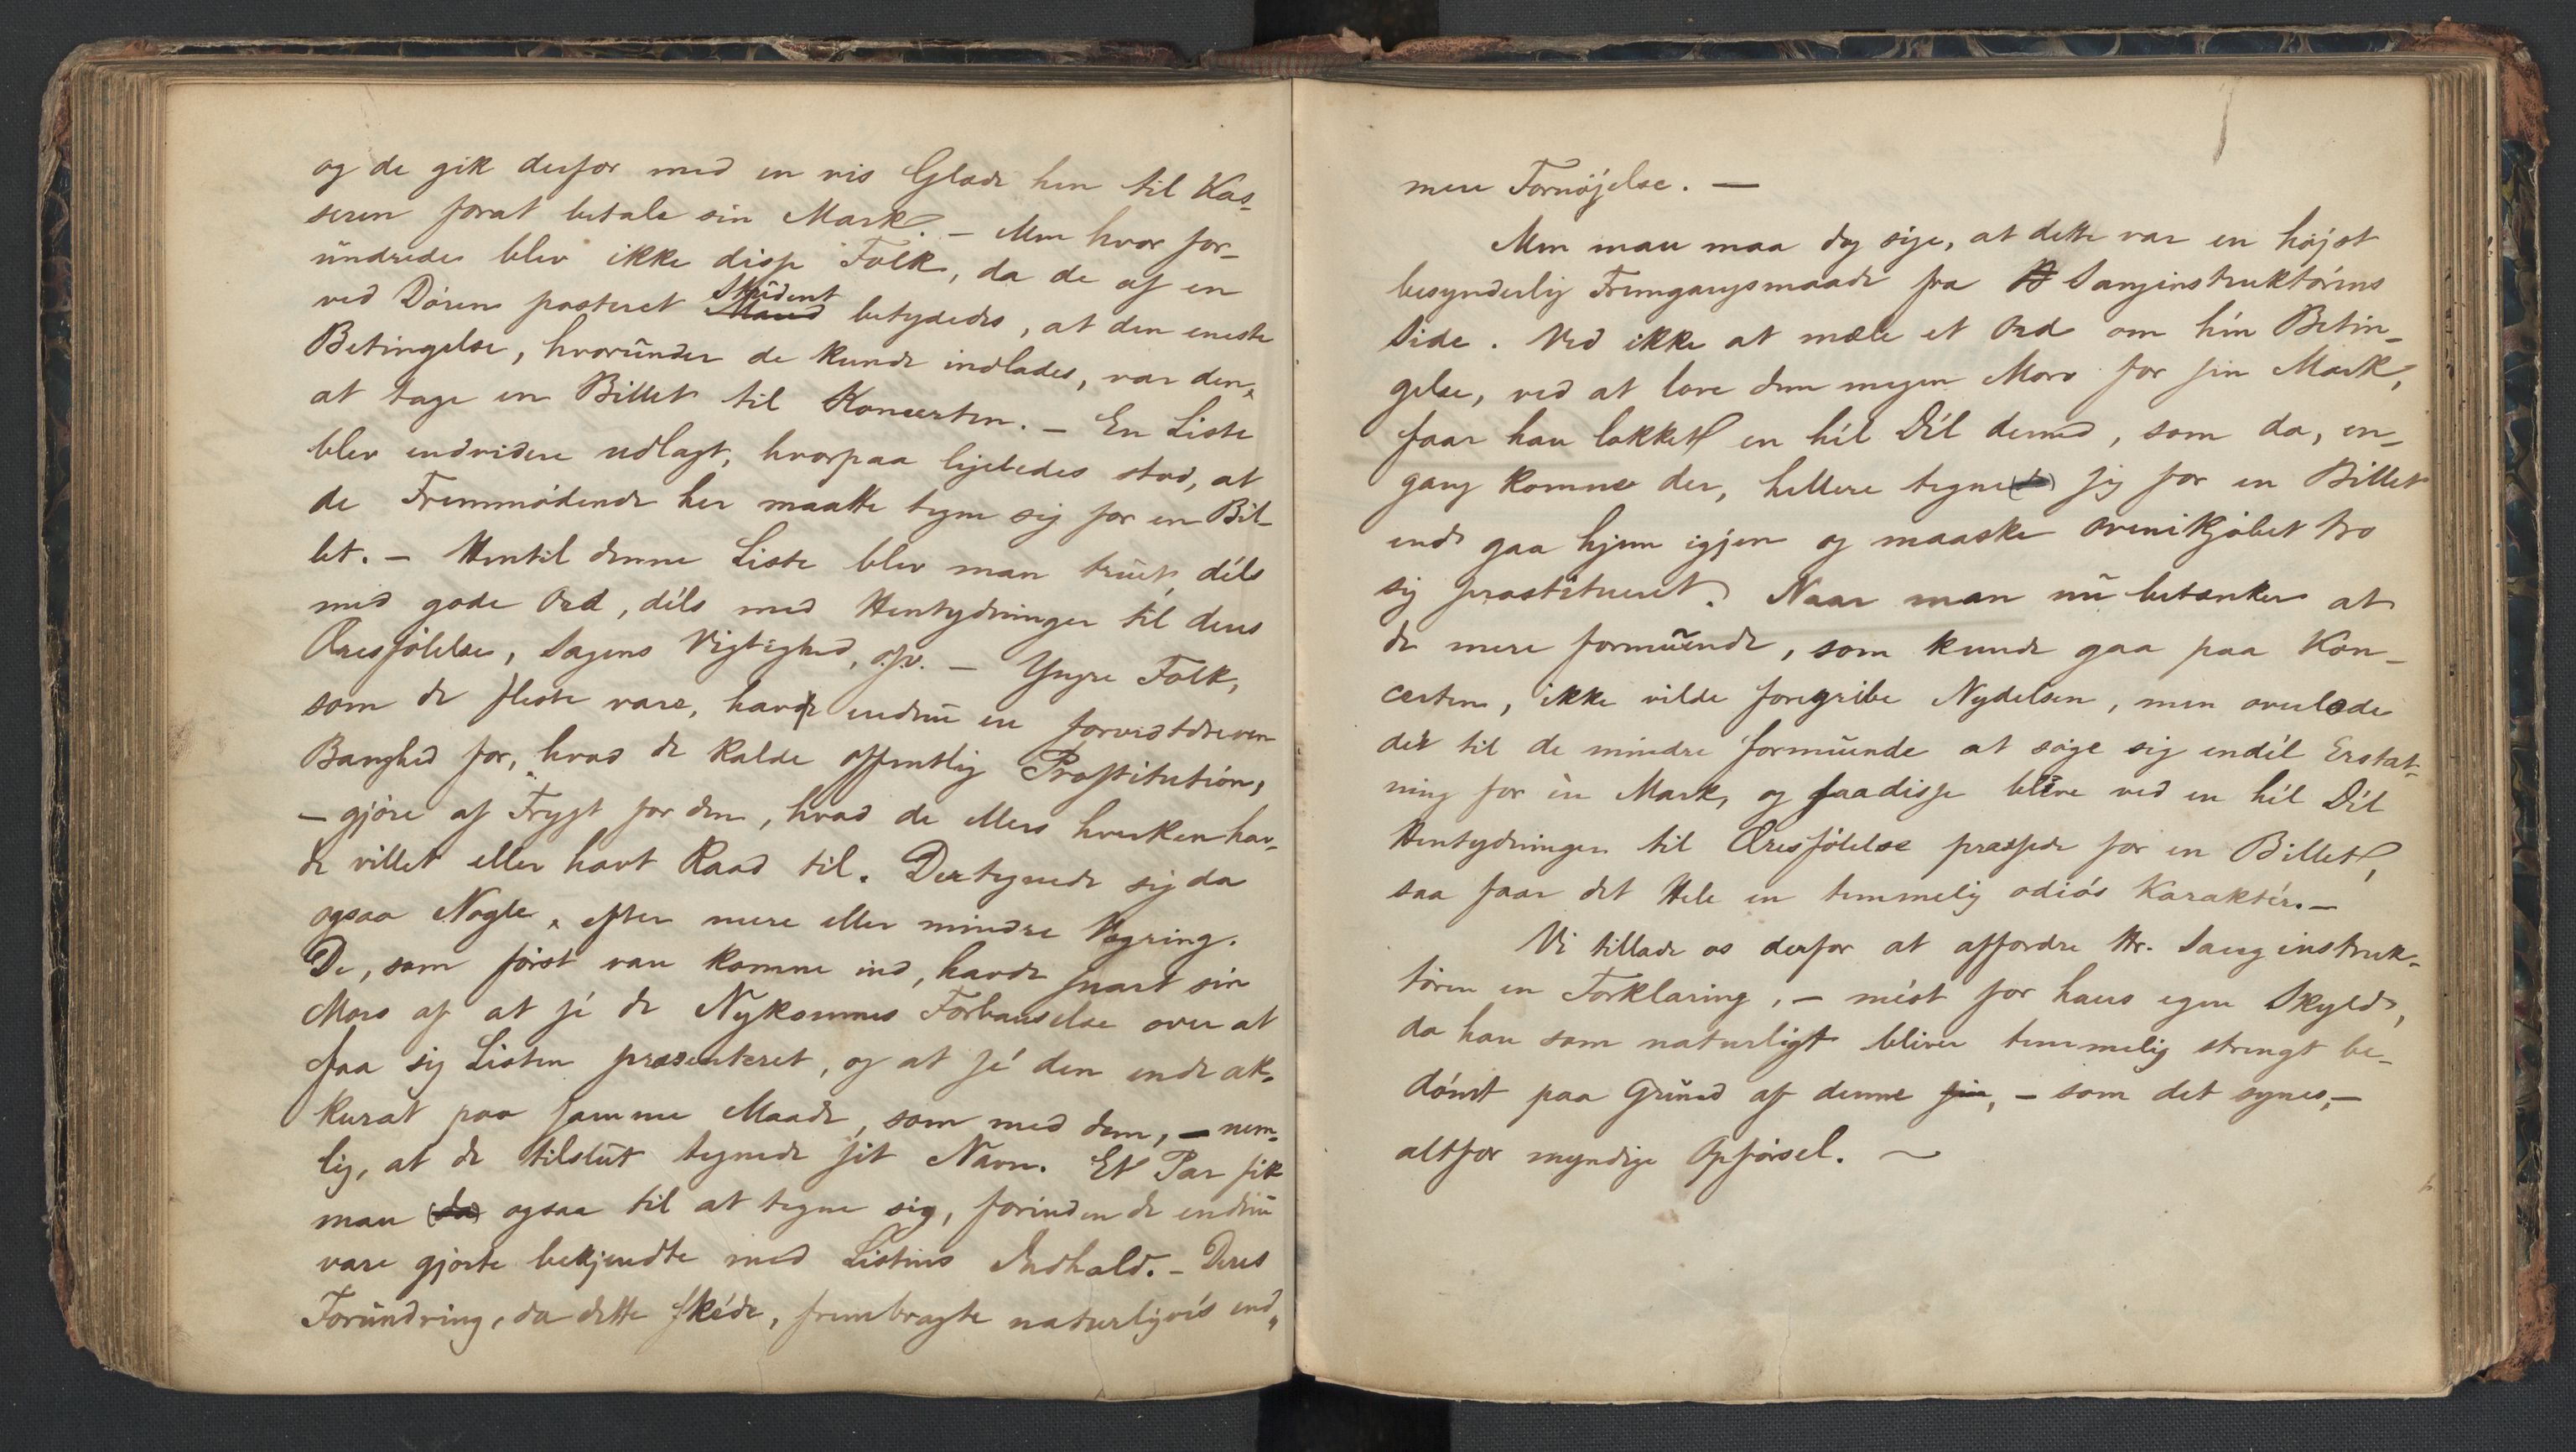 og de gik derfor med en vis Glæde hen til Kas-
seren forat betale sin Mark. – Men hvor for-
undrede blev ikke disse Folk, da de af en
ved Døren posteret Student betydedes, at den eneste
Betingelse, hvorunder de kunde indlades, var den,
at tage en Billet til Koncerten. – En Liste
blev endvidere udlagt, hvorpaa ligeledes stod, at
de Fremmødende her maatte tegne sig for en Bil-
let. – Hentil denne Liste blev man truet, déls
med gode Ord, déls med Hentydninger til deres
Æresfølelse, Sagens Vigtighed, osv. – Yngre Folk,
som de fleste vare, havde endnu en forvidtdreven
Banghed for, hvad de kalde offentlig Prostitution,
– gjøre af Frygt for den, hvad de ellers hverken hav-
de villet eller havt Raad til. Der tegnede sig da
ogsaa Nogle, efter mere eller mindre Vægring.
De, som først var komne ind, havde snart sin
Moro af at sé de Nykomnes Forbauselse over at
faa sig Listen præsenteret, og at sé den ende ak-
kurat paa samme Maade, som med dem, – nem-
lig, at de tilslut tegnede sit Navn. Et Par fik
man (da) ogsaa til at tegne sig, forinden de endnu
vare gjorte bekjendte med Listens Indhold. – Deres
Forundring, da dette skéde, frembragte naturligvis end-
mere Fornøjelse. –
Men man maa dog sige, at dette var en højst
besynderlig Fremgangsmaade fra Sanginstruktørens
Side. Ved ikke at mæle et Ord om hin Betin-
gelse, ved at love dem megen Moro for sin Mark,
faar han lokket en hél Dél derned, som da, en-
gang komne der, hellere tegne sig for en Billet
end gaa hjem igjen og maaske ovenikjøbet tro
sig prostitueret. Naar man nu betænker at
de mere formuende, som kunde gaa paa Kon-
certen, ikke vilde foregribe Nydelsen, men overlode
det til de mindre formuende at søge sig endél Erstat-
ning for én Mark, og saa disse blive ved en hél Dél
Hentydninger til Æresfølelse pressede for en Billet,
saa faar det Hele en temmelig odiøs Karaktér. –
Vi tillade os derfor at affordre Hr. Sanginstruk-
tøren en Forklaring, – mést for hans egen Skyld,
da han som naturligt bliver temmelig strengt be-
dømt paa Grund af denne sin, – som det synes, –
altfor myndige Opførsel. ~